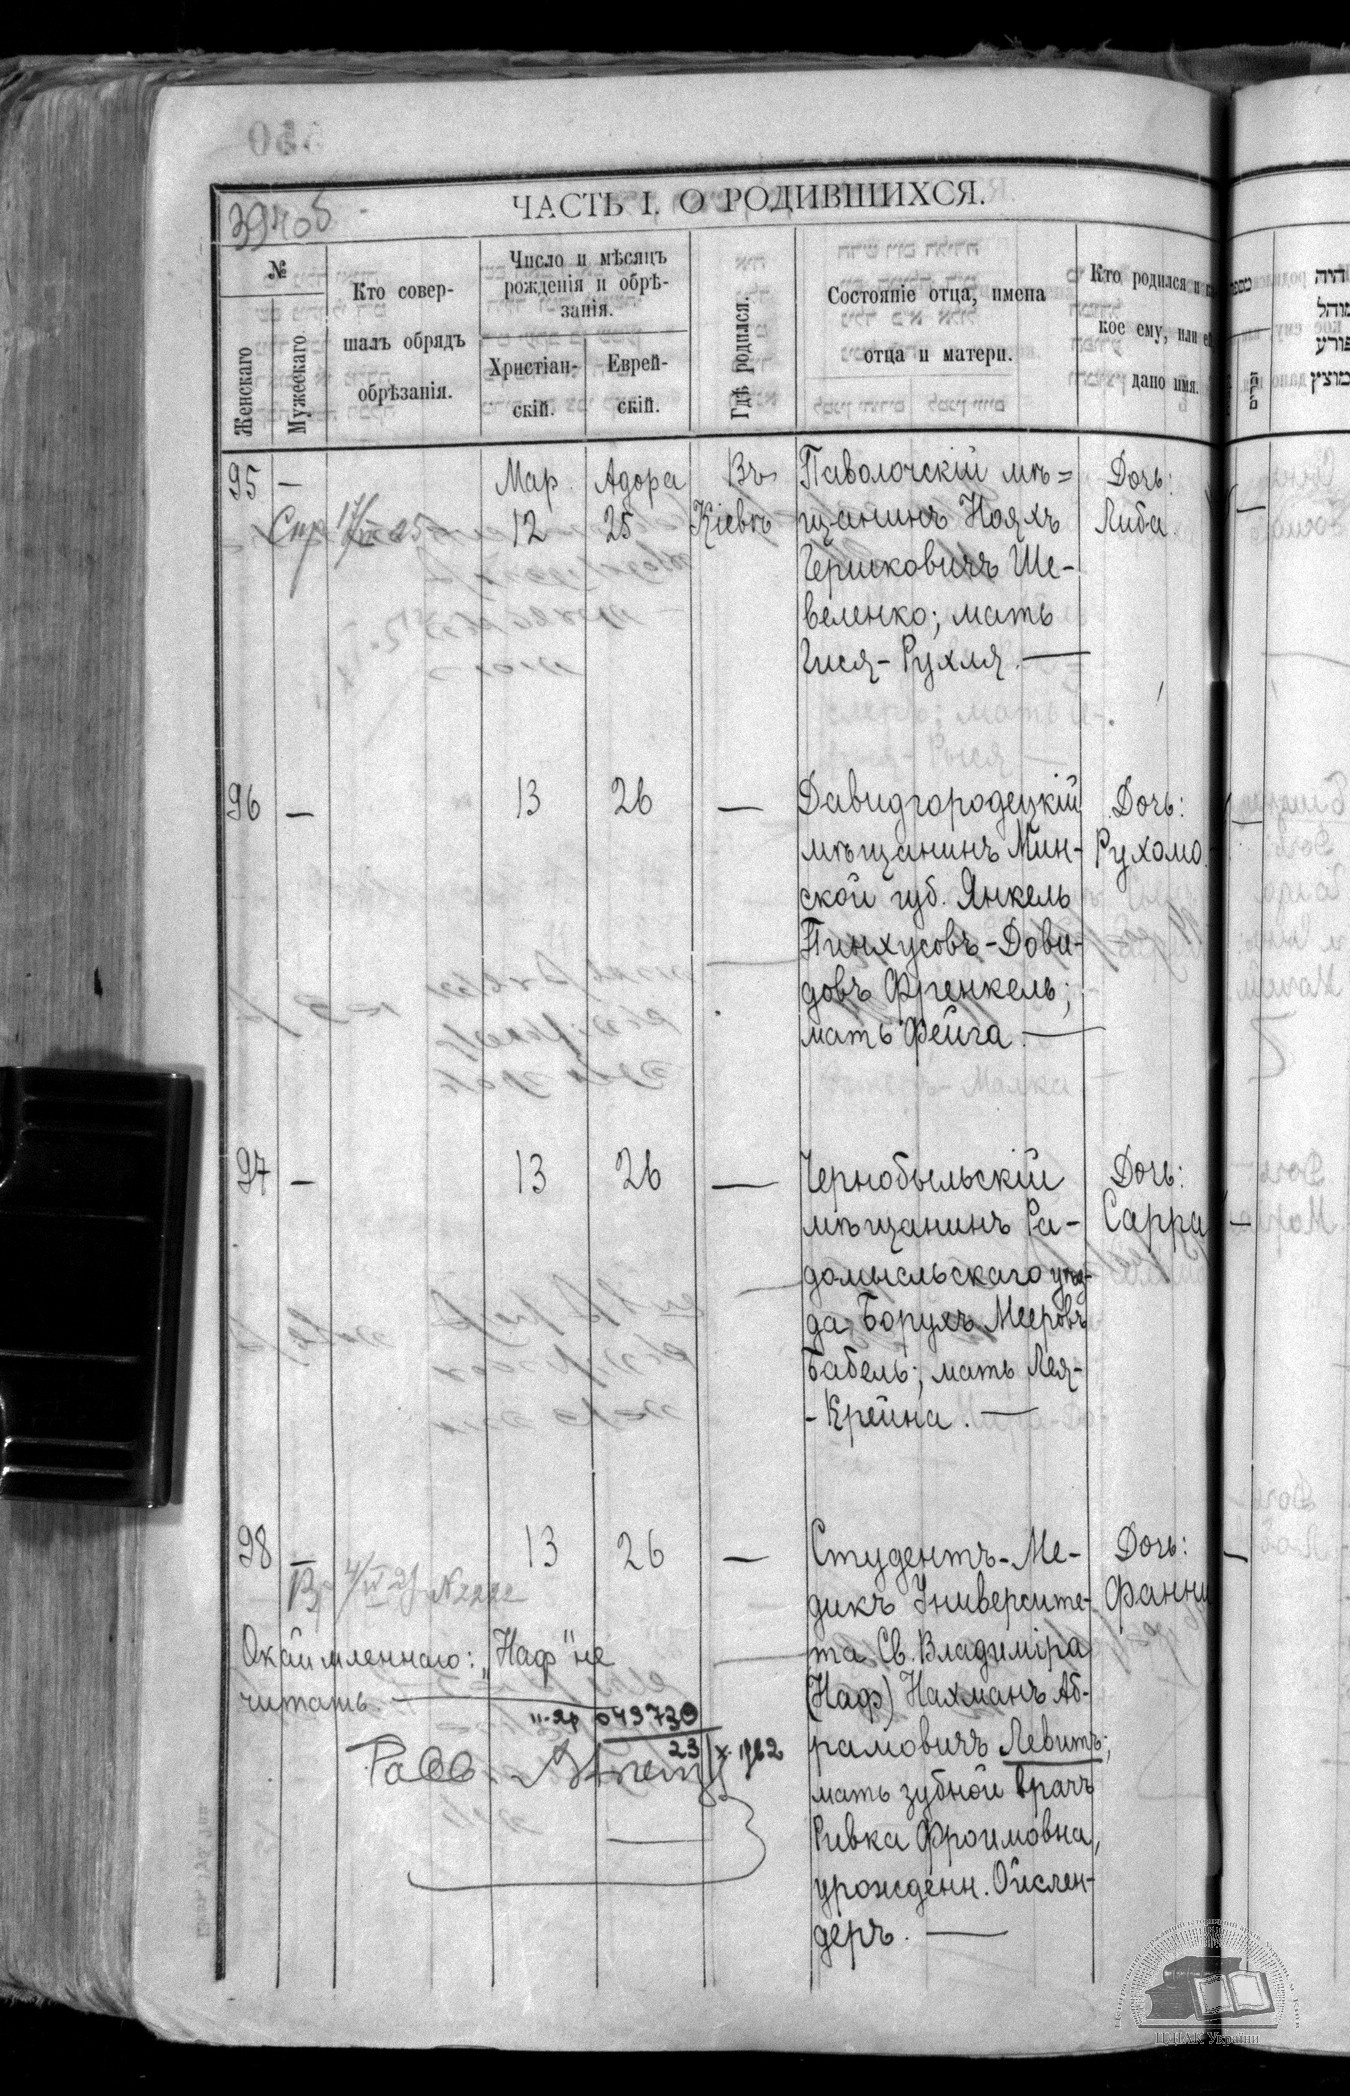 ЧАСТЬ I. О РОДИВШИХСЯ.
№
Женскаго
Мужескаго
Кто совер-
шалъ обрядъ
обрѣзанія.
Число и мѣсяцъ
рожденія и обрѣ-
занія.
Христіан-
скій.
Еврей-
скій.
Гдѣ родился.
Состояніе отца, имена
отца и матери.
Кто родился и ка
кое ему, или ей
дано имя.
95 —
Мар.
12
Адора
25
Въ
Кіевѣ
Паволочскій мѣ=
щанинъ Нояхъ
Гершковичъ Ше-
веленко; мать
Гися-Рухля. —
Дочь:
Либа.
96 —
13
26
—
Давидгородецкій
мѣщанинъ Мин-
ской губ. Янкель
Пинхусовъ-Дови-
довъ Френкель;
мать Фейга. —
Дочь:
Рухомо.
97 —
13
26
—
Чернобыльскій
мѣщанинъ Ра-
домысльскаго уѣз-
да Борухъ Мееровъ
Бабель; мать Лея-
-Крейна. —
Дочь:
Сарра
98 —
13
26
—
Студентъ-Ме-
дикъ Университе-
та Св. Владиміра
(Наф) Нахманъ Аб-
рамовичъ Левитъ;
мать зубной врачъ
Ривка Фроимовна,
урожденн. Ойслен-
деръ. —
Дочь:
Фанни
Окаймленнаго: „Наф" не
читать. —
049730
23/X-1962
ЦДІАК України